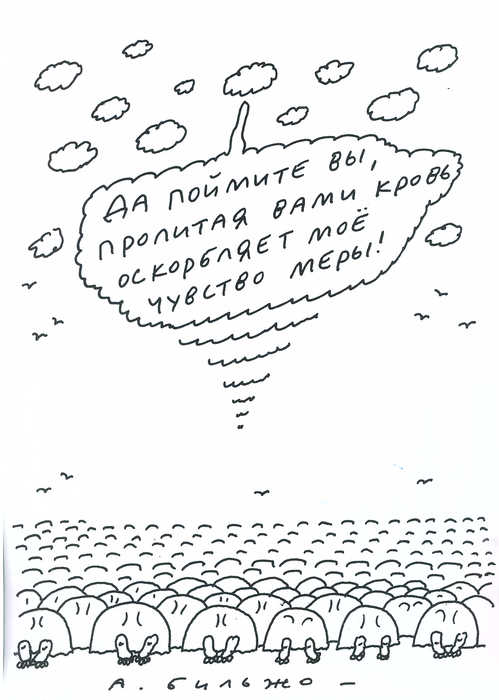 ДА ПОЙМИТЕ ВЫ,
ПРОЛИТАЯ ВАМИ КРОВЬ
ОСКОРБЛЯЕТ МОЁ
ЧУВСТВО МЕРЫ!
А. БИЛЬЖО –